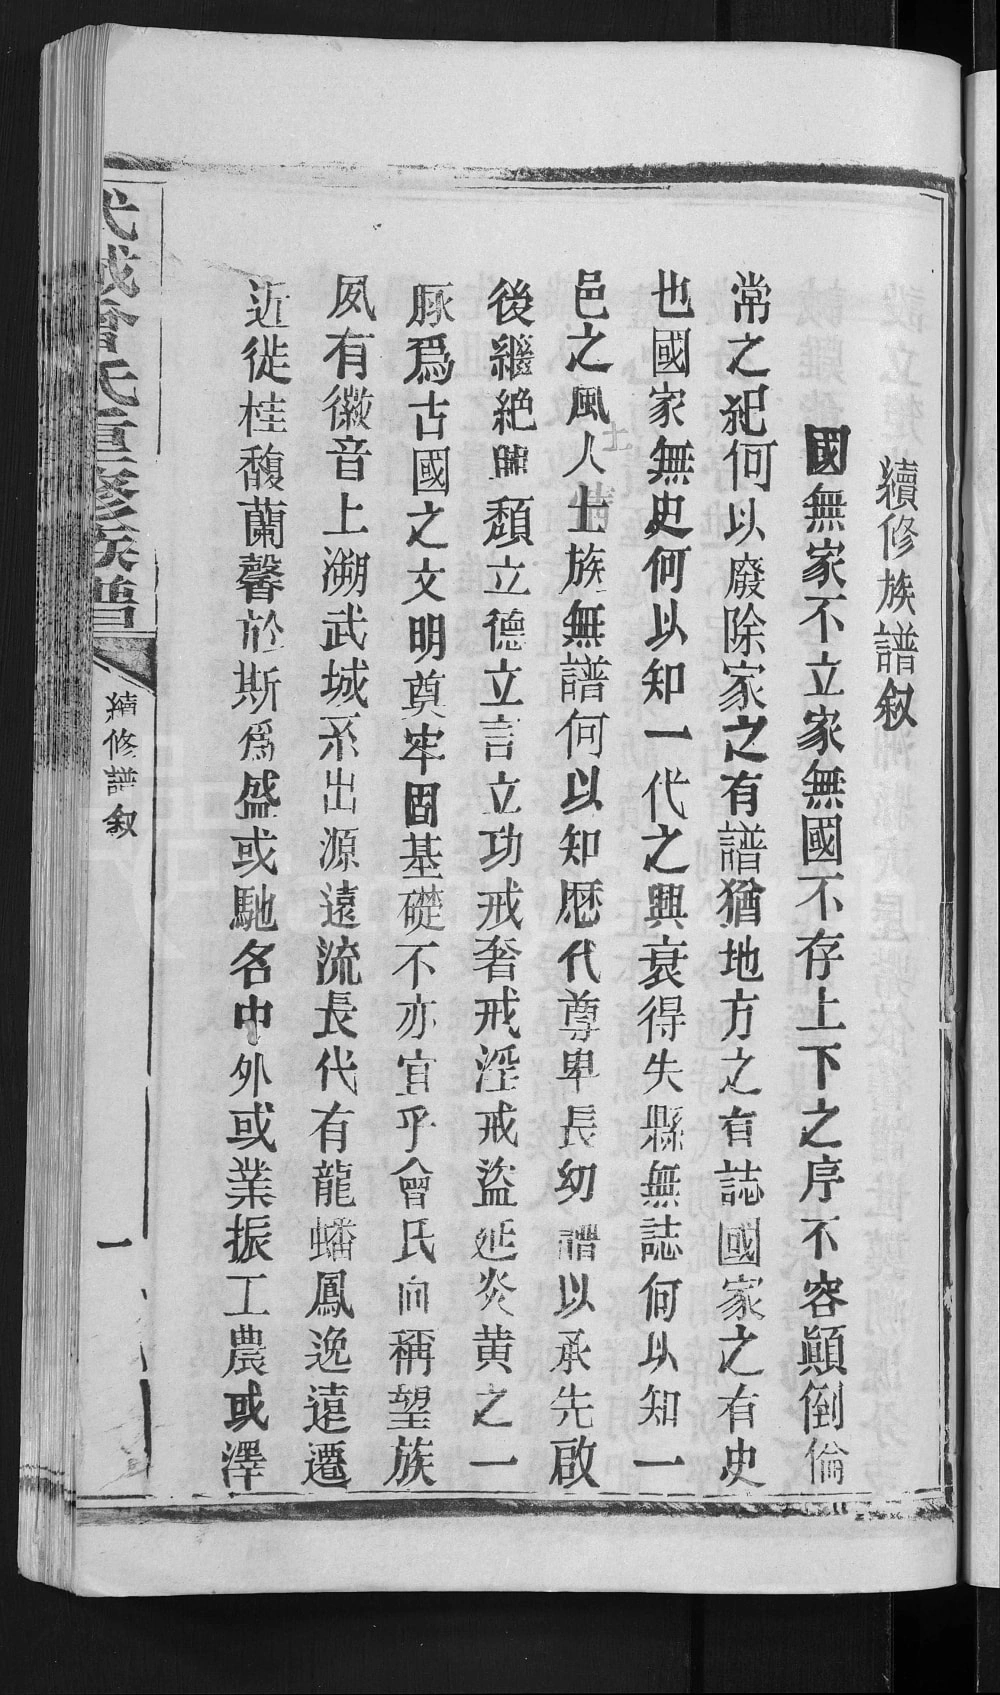 續修族譜叙
國無家不立家無國不存上下之序不容顚倒倫
常之犯何以廢除家之有譜猶地方之有誌國家之有史
也國家無史何以知一代之興衰得失縣無誌何以知一
邑之風人士族無譜何以知歷代尊卑長幼譜以承先啟
後繼絶肆頽立德立言立功戒奢戒淫戒盜延炎黄之一
脈爲古國之文明奠牢固基礎不亦宜乎會氏向稱望族
夙有徽音上溯武城系出源遠流長代有龍蟠鳳逸遠遷
近徙桂馥蘭馨於斯爲盛或馳名中外或業振工農或澤
武城曾氏重修族譜
續修譜叙
一